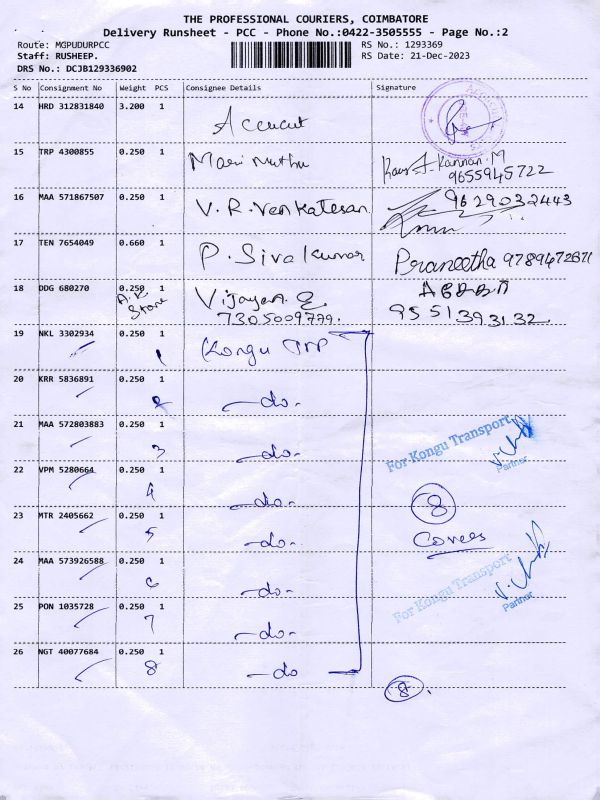 THE PROFESSIONAL COURIERS, COIMBATORE
Delivery Runsheet - PCC - Phone No.:0422-3505555 - Page No.:2
Route: MGPUDURPCC RS No.: 1293369
Staff: RUSHEEP. RS Date: 21-Dec-2023
DRS No.: DCJB129336902
S No Consignment No Weight PCS Consignee Details Signature
14 HRD 312831840 3.200 1 Accucut
15 TRP 4300855 0.250 1 Mari Muthu Kannan.M
9655945722
16 MAA 571867507 0.250 1 V.R.Venkatesan 9629032443
17 TEN 7654049 0.660 1 P.Sivakumar Praneetha
18 DDG 680270 0.250 1 Vijayan
A.K Store 7305009779. 9551393132
19 NKL 3302934 0.250 1 Kongu TRP
1
20 KRR 5836891 0.250 1 -do-
2
21 MAA 572803883 0.250 1 -do-
3
For Kongu Transport
Partner
22 VPM 5280664 0.250 1 -do-
4
8
23 MTR 2405662 0.250 1 -do-
5
Covers
24 MAA 573926588 0.250 1 -do-
6
For Kongu Transport
Partner
25 PON 1035728 0.250 1 -do-
7
26 NGT 40077684 0.250 1 -do
8
8.